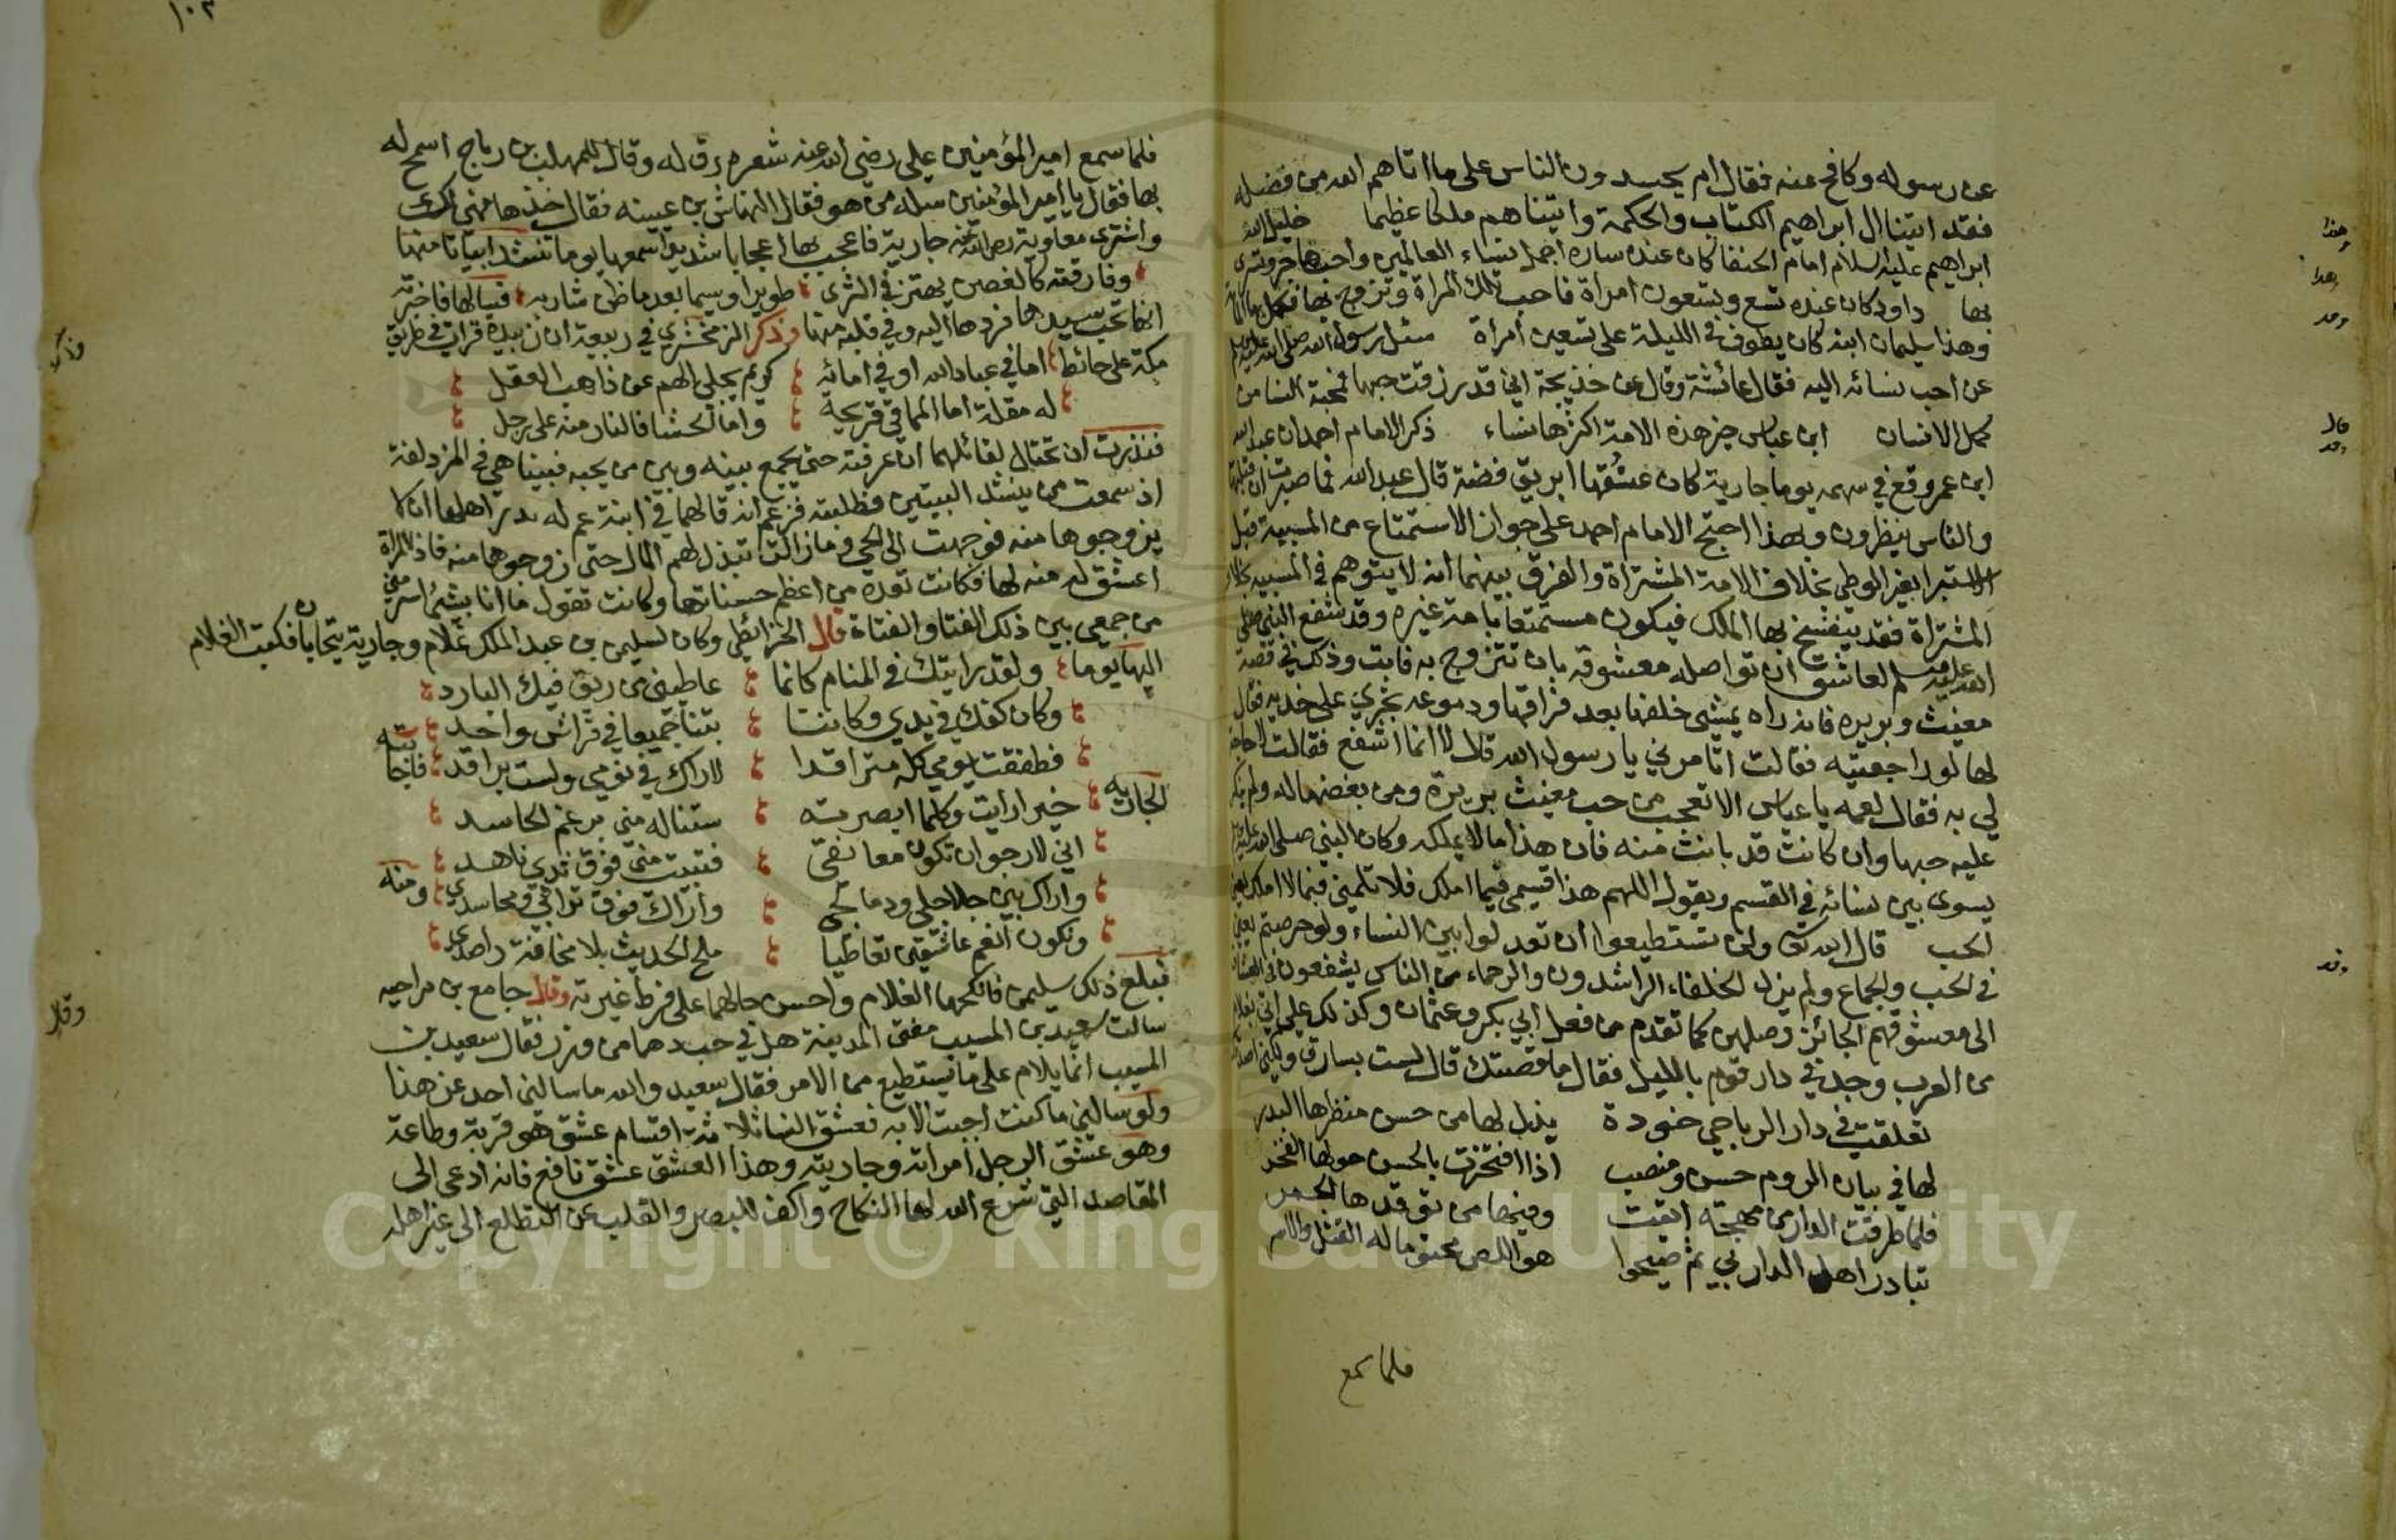 عن رسوله وكافح عنه فقال ام يحسدون الناس على ما اتاهم الله من فضله
فقد اتينا ال ابراهيم الكتاب والحكمة واتيناهم ملكا عظيما خليل الله
ابراهيم عليه السلام امام الحنفا كان عنده ساره اجمل نساء العالمين واحب هاجر وتسرى
بها داود كان عنده تسع وتسعون امراة فاحب تلك المراة وتزوج بها فكمل بها
وهذا سليمان ابنه كان يطوف في الليلة على تسعين امراة سئل رسول الله صلى الله عليه وسلم
عن احب نسائه اليه فقال عائشة وقال عن خديجة اني قد رزقت حبها فمحبة النسا من
كمال الانسان ابن عباس خير هذه الامة اكثرها نساء ذكر الامام احمد ان عبد الله
ابن عمر وقع في سهمه يوما جارية كان عنقها ابريق فضة قال عبد الله فما صبرت ان قبلتها
والناس ينظرون وبهذا احتج الامام احمد على جواز الاستمتاع من المسبية قبل
الاستبرا بغير الوطي بخلاف الامة المشتراة والفرق بينهما انه لا يتوهم في المسبيه
المشتراة فقد ينفسخ بها الملك فيكون مستمتعا بامة غيره وقد شفع النبي صلى
الله عليه وسلم لعاشق ان تواصله معشوقته بان تتزوج به فابت وذلك في قصة
مغيث وبريره فانه راه يمشي خلفها بعد فراقها ودموعه تجري على خديه فقال
لها لو راجعتيه فقالت اتامرني يا رسول الله قال لا انما اشفع فقالت لا حاجة
لي به فقال لعمه يا عباس الا تعجب من حب مغيث بريرة ومن بغضها له ولم ينكر
عليه حبها وان كانت قد بانت منه فان هذا ما لا يملكه وكان النبي صلى الله عليه وسلم
يسوى بين نسائه في القسم ويقول اللهم هذا قسمي فيما املك فلا تلمني فيما لا املك يعني
الحب قال الله تعالى ولن تستطيعوا ان تعدلوا بين النساء ولو حرصتم يعني
في الحب والجماع ولم يزل الخلفاء الراشدون والرحماء من الناس يشفعون في العشاق
الى معشوقهم الجائز وصلهن كما تقدم من فعل ابي بكر وعثمان وكذلك علي اتي بغلام
من العرب وجد في دار قوم بالليل فقال ما قصتك قال لست بسارق ولكني اصدقك
تعلقت في دار الرباحي خودة يذل لها من حسن منظرها البدر
لها في بيان الروم حسن ومنصب اذا افتخرت بالحسن حولها الفخر
فلما طرقت الدار من مهجة اتقت وفيها من توقدها الجمر
تبادر اهل الدار بي ثم صيحوا هو اللص محتوما له القتل والاسر
فلما سمع
وهذا
وهذا
وهذ
قال
وقد
وقد
١٠٢
فلما سمع امير المؤمنين علي رضي الله عنه شعره رق له وقال للمهلب بن رباح اسمح له
بها فقال يا امير المؤمنين سله من هو فقال النهاش بن عيينه فقال خذها فهي لك
واشترى معاوية رضي الله عنه جارية فاعجب بها اعجابا شديدا فسمعها يوما تنشد ابياتا منها
وفارقته كالغصن يهتز في الثرى طويرا وسيما بعد ما طر شاربه فسالها فاخبرته
انها تحب سيدها فردها اليه وفي قلبه منها وذكر الزمخشري في ربيعه ان زبيدة قرات في طريق
مكة على حائط اما في عباد الله او في امائه كريم يجلي الهم عن ذاهب العقل
له مقلة اما المآقي قريحة واما الحشا فالنار منه على رجل
فنذرت ان تحتال لقائلهما ان عرفته حتى يجمع بينه وبين من يحبه فبينا هي في المزدلفة
اذ سمعت من ينشد البيتين فطلبته فزعم انه قالهما في ابنة عم له نذر اهلها ان لا
يزوجوها منه فوجهت الى الحي وما زالت تبذل لهم المال حتى زوجوها منه فاذا المراة
اعشق له منه لها فكانت تعده من اعظم حسناتها وكانت تقول ما انا بشئ اسر مني
من جمعي بين ذلك الفتا والفتاة قال الخرائطي وكان لسليمن بن عبد الملك غلام وجارية يتحابان فكتب الغلام
اليها يوما ولقد رايتك في المنام كانما عاطيتني من ريق فيك البارد
وكان كفك في يدي وكاننا بتنا جميعا في فراش واحد
فطفقت يومي كله متراقدا لاراك في نومي ولست براقد فاجابته
الجاريه خيرا رايت وكلما ابصرته ستناله مني برغم الحاسد
اني لارجو ان تكون معانقي فتبيت مني فوق ثدي ناهد
واراك بين خلاخلي ودمالجي واراك فوق ترائبي ومجاسدي ومنه
ونكون انعم عاشقين تعاطيا ملح الحديث بلا مخافة راصدي
فبلغ ذلك سليمن فانكحها الغلام واحسن حالهما على فرط غيرته وقال جامع بن مراحيه
سالت سعيد بن المسيب مفتي المدينة هل في حب دهما من وزر فقال سعيد بن
المسيب انما يلام على ما يستطيع من الامر فقال سعيد والله ما سالني احد عن هذا
ولو سالني ما كنت اجبت الا به فعشق النسا ثلاثة اقسام عشق هو قربة وطاعة
وهو عشق الرجل امراته وجاريته وهذا العشق عشق نافع فانه ادعى الى
المقاصد التي شرع الله لها النكاح واكف للبصر والقلب عن التطلع الى غير اهله
وذكر
وقال
Copyright © King Saud University